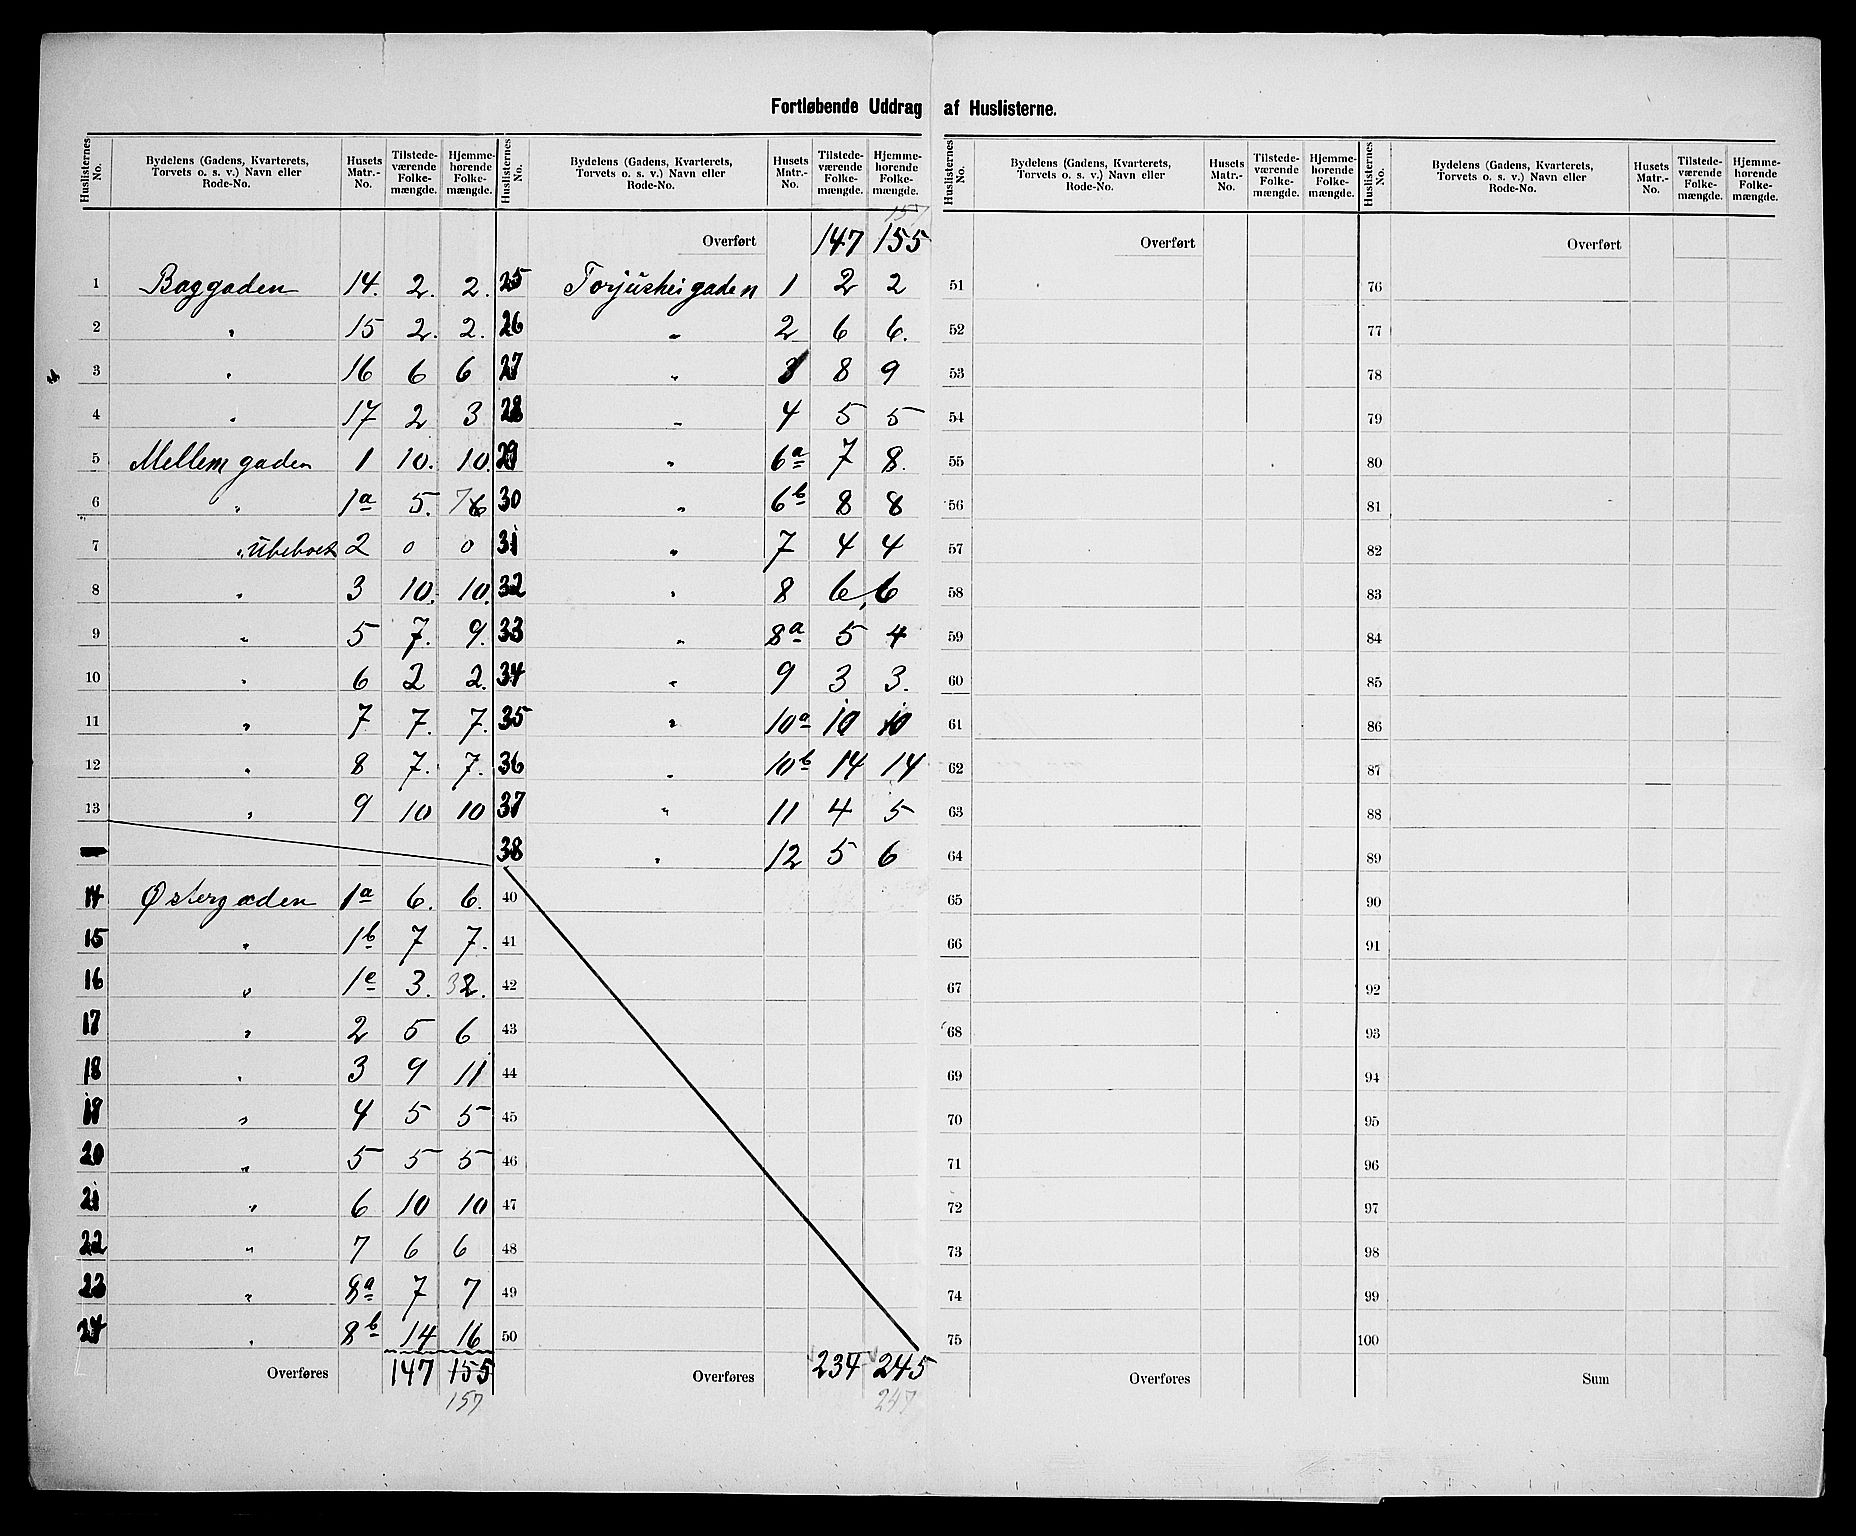 Fortløbende Uddrag af Huslisterne.
Huslisternes No. | Bydelens (Gadens, Kvarterets, Torvets o. s. v.) Navn eller Rode-No. | Husets Matr.-No. | Tilstedeværende Folkemængde. | Hjemmehørende Folkemængde.
1 Baggaden 14. 2. 2.
2 " 15 2. 2.
3 " 16 6 6
4 " 17 2 3
5 Mellemgaden 1 10. 10.
6 " 1a 5. 7 6
7 " Ubeboet 2 0 0
8 " 3 10. 10.
9 " 5 7. 9.
10 " 6 2 2.
11 " 7 7. 7.
12 " 8 7. 7.
13 " 9 10 10
14 Østergaden 1a 6. 6.
15 " 1b 7 7.
16 " 1c 3. 3 2.
17 " 2 5 6
18 " 3 9 11
19 " 4 5 5
20 " 5 5 5
21 " 6 10 10
22 " 7 6 6
23 " 8a 7 7
24 " 8b 14 16
Overføres 147 155
157
Huslisternes No. | Bydelens (Gadens, Kvarterets, Torvets o. s. v.) Navn eller Rode-No. | Husets Matr.-No. | Tilstedeværende Folkemængde. | Hjemmehørende Folkemængde.
157
Overført 147 155
25 Torjusheigaden 1 2 2
26 " 2 6 6.
27 " 3 8 9
28 " 4 5 5
29 " 6a 7 8.
30 " 6b 8 8
31 " 7 4 4
32 " 8 6 6
33 " 8a 5 4
34 " 9 3 3.
35 " 10a 10 10
36 " 10b 14 14
37 " 11 4 5
38 " 12 5 6
40
41
42
43
44
45
46
47
48
49
50
Overføres 234 245
247
Huslisternes No. | Bydelens (Gadens, Kvarterets, Torvets o. s. v.) Navn eller Rode-No. | Husets Matr.-No. | Tilstedeværende Folkemængde. | Hjemmehørende Folkemængde.
Overført
51
52
53
54
55
56
57
58
59
60
61
62
63
64
65
66
67
68
69
70
71
72
73
74
75
Overføres
Huslisternes No. | Bydelens (Gadens, Kvarterets, Torvets o. s. v.) Navn eller Rode-No. | Husets Matr.-No. | Tilstedeværende Folkemængde. | Hjemmehørende Folkemængde.
Overført
76
77
78
79
80
81
82
83
84
85
86
87
88
89
90
91
92
93
94
95
96
97
98
99
100
Sum